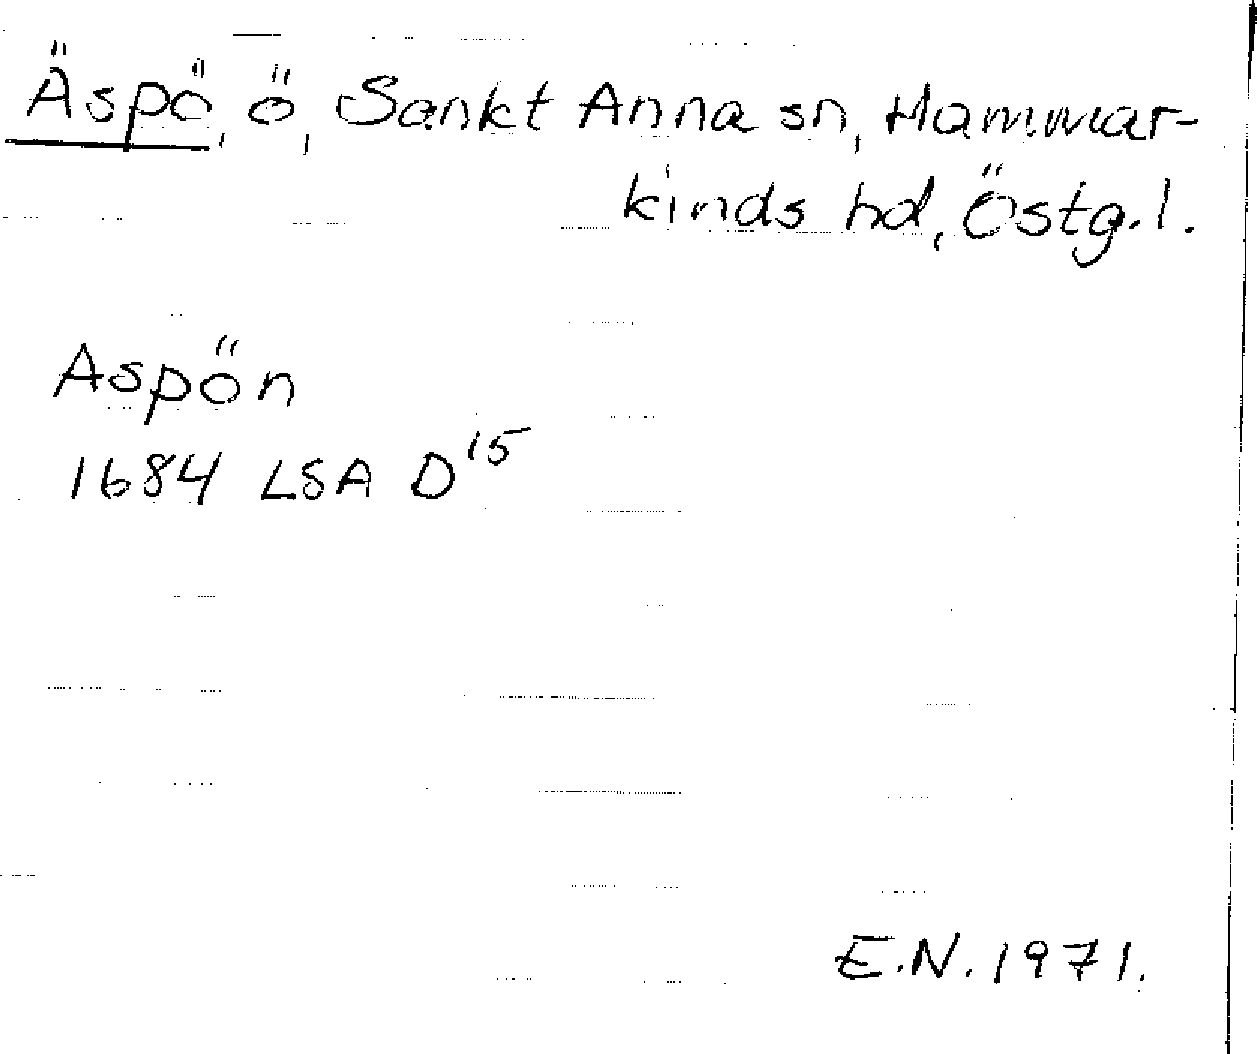 Äspö, ö, Sankt Anna sn, Hammar-
kinds hd, Östg. l.
Aspön
1684 LSA D15
E.N. 1971.